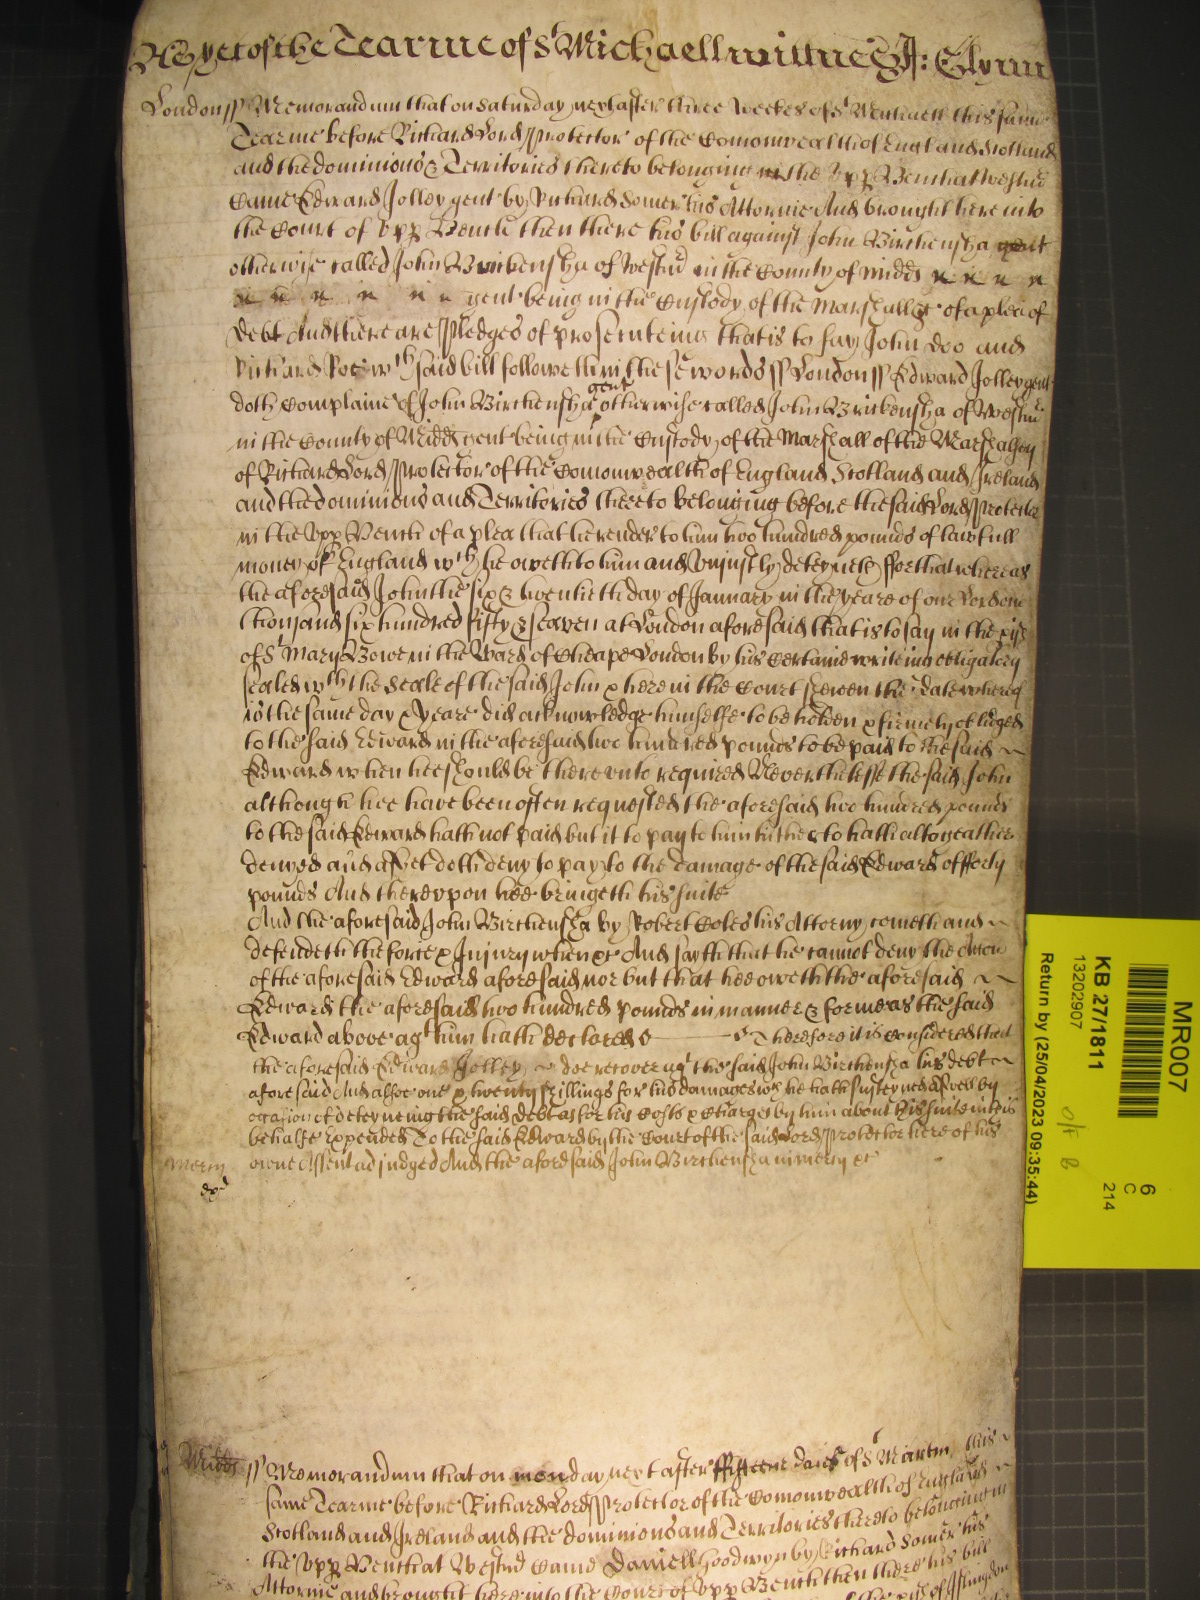 As yet of the Tearme of St Michaell wittnes J: Glynn
London ss Memorandum that on Saturday next after three weekes of St Michaell this same
Tearme before Richard Lord Protector of the Comonwealth of England Scotland
and the dominions & Territories thereto belonging in the Upp Bench at Westmr
Came Edward Jolley gent by Richard Somer his Attornie And brought here into
the Court of Upp Bench then there his bill against John Birchensha gent
otherwise called John Birkensha of Westmr in the County of Midds
gent being in the Custody of the Marshall &c of a plea of
Debt And there are Pledges of prosecuteing that is to say John Doo and
Richard Roe wch said bill followeth in these words ss London ss Edward Jolley gent
doth Complaine of John Birchensha gent otherwise called John Birkensha of Westmr
in the County of Midds gent being in the Custody of the Marshall of the Marshalsey
of Richard Lord Protector of the Comonwealth of England Scotland and Ireland
and the dominions and Territories thereto belonging before the said Lord Protector
in the Upp Bench of a plea that he render to him two hundred pounds of lawfull
money of England wch he oweth to him and Unjustly deteyneth ffor that whereas
the aforesaid John the six & twentieth day of January in the yeare of our Lord one
thousand six hundred fifty & seaven at London aforesaid that is to say in the pish
of St Mary Bowe in the Ward of Cheape London by his Certaine writeing obligatory
sealed wth the Seale of the said John & here in the Court shewen the date whereof
is the same day & yeare did acknowledge himselfe to be holden & firmely obliged
to the said Edward in the aforesaid two hundred pounds to be paid to the said
Edward when hee should be thereunto required Neverthelesse the said John
although hee have been often requested the aforesaid two hundred pounds
to the said Edward hath not paid but it to pay to him hitherto hath altogeather
denyed and as yet doth deny to pay to the damage of the said Edward of fforty
pounds And thereupon hee bringeth his suite
And the aforesaid John Birchensha by Robert Coles his Attorny cometh and
defendeth the force & Injury when &c And saith that he cannot deny the Accon
of the aforesaid Edward aforesaid nor but that hee oweth the aforesaid
Edward the aforesaid two hundred pounds in manner & forme as the said
Edward above agt him hath declared Therefore it is considered that
the aforesaid Edward Jolley doe recover agt the said John Birchensha his debt
aforesaid And alsoe one & twenty shillings for his damages wch he hath susteyned aswell by
occasion of deteyneing the said debt as for his Costs & Charges by him about his suite in this
behalfe expended To the said Edward by the Court of the said Lord Protector here of his
owne Assent adjudged And the aforesaid John Birchensha in mercy &c
mercy
Midds ss Memorandum that on monday next after fifteene daies of St Martin this
same Tearme before Richard Lord Protector of the Comonwealth of England
Scotland and Ireland and the dominions and Territories thereto belonging in
the Upp Bench at Westmr Came Daniell Goodwyn by Richard Somer his
Attornie and brought here into the Court of Upp Bench then there his bill
of the pish of Islingdon
MR007
KB 27/1811
13202907
Return by (25/04/2023 09:35:44)
6
C
214